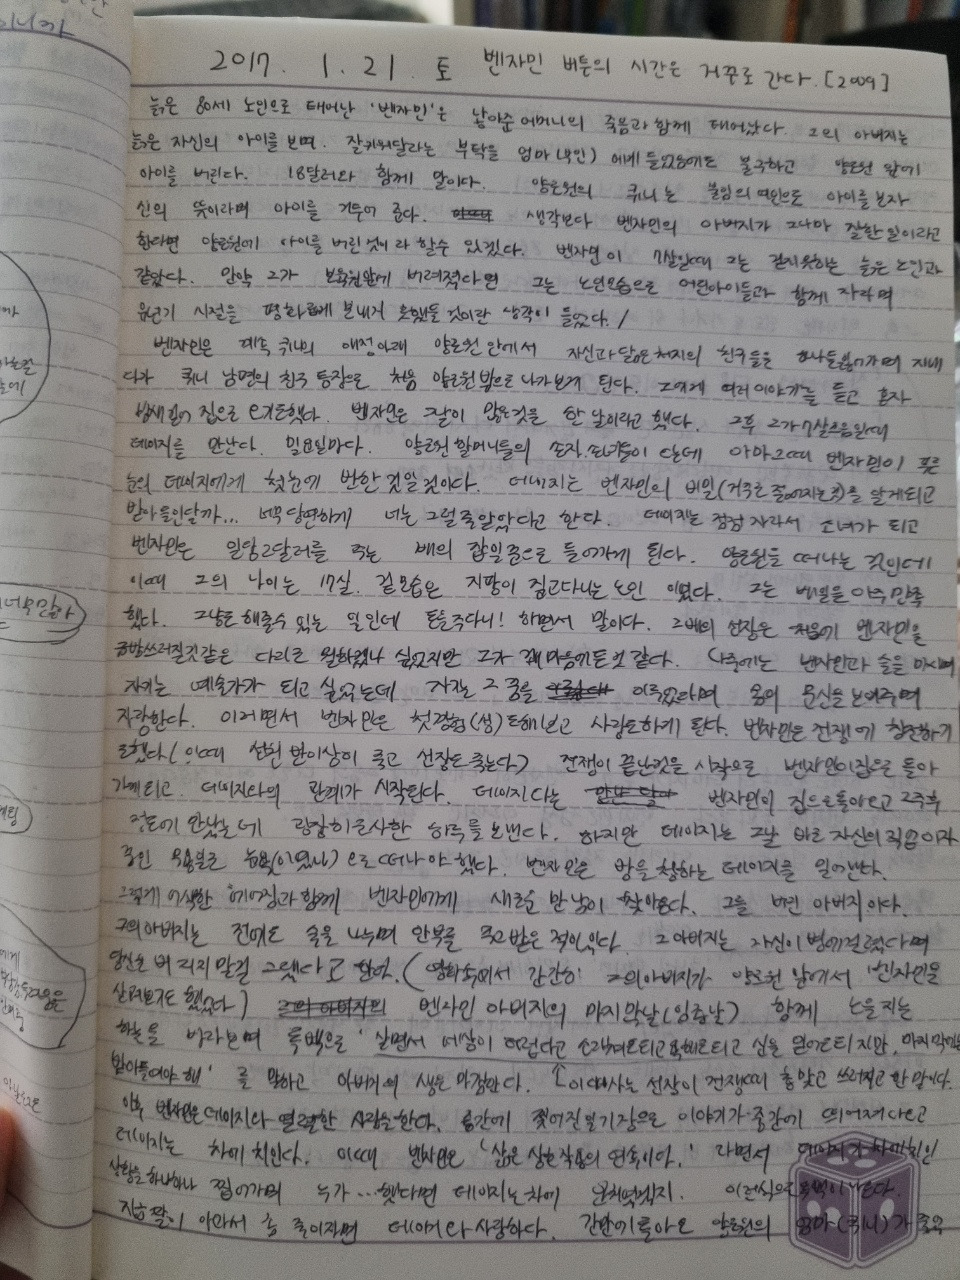 2017. 1. 21. 토 벤자민 버튼의 시간은 거꾸로 간다. [2009]
늙은 80세 노인으로 태어난 '벤자민'은 낳아준 어머니의 죽음과 함께 태어났다. 그의 아버지는
늙은 자신의 아이를 보며. 잘키워달라는 부탁을 엄마 에게 들었음에도 불구하고 양로원 앞에
아이를 버린다. 18달러와 함께 말이다. 양로원의 퀴니는 불임의 여인으로 아이를 보자
신의 뜻이라며 아이를 거두어 준다. 생각보다 벤자민의 아버지가 그나마 잘한 일이라고
한다면 양로원에 아이를 버린것이라 할수 있겠다. 벤자민이 7살일때 그는 걷지못하는 늙은 노인과
같았다. 만약 그가 보육원앞에 버려졌다면 그는 노인모습으로 어린아이들과 함께 자라며
유년기 시절을 평화롭게 보내지 못했을 것이란 생각이 들었다. /
벤자민은 계속 퀴니의 애정아래 양로원 안에서 자신과 닮은 처지의 친구들을 하나둘 가며 지내
다가 퀴니 남편의 친구 등장으로 처음 양로원 밖으로 나가보게 된다. 그에게 여러 이야기를 듣고 혼자
밤새 걸어 집으로 오기도했다. 벤자민은 그날이 한 날이라고 했다. 그후 그가 7살즈음일때
데이지를 만난다. 일요일마다. 양로원 할머니들의 손자.손녀들이 오는데 아마 그때 벤자민이 푸른
눈의 데이지에게 첫눈에 반한 것일 것이다. 데이지는 벤자민의 비밀(거꾸로 젊어지는것)을 알게되고
받아들인달까... 너무 당연하게 너는 그럴줄알았다고 한다. 데이지는 점점 자라서 소녀가 되고
벤자민은 일당2달러를 주는 배의 잡일꾼으로 들어가게 된다. 양로원을 떠나는 것인데
이때 그의 나이는 17살. 겉모습은 지팡이 짚고다니는 노인 이였다. 그는 배일을 아주 만족
했다. 그냥도 해줄수 있는 일인데 돈을주다니! 하면서 말이다. 그배의 선장은 처음에 벤자민을
금방쓰러질것같은 다리로 싶었지만 그가 꽤 마음에 든것 같다. 나중에는 벤자민과 술을 마시며
자기는 예술가가 되고 싶었는데 자기는 그 꿈을 이루었다며 몸의 문신을 보여주며
자랑한다. 이러면서 벤자민은 첫경험(성)도해보고 사랑도하게 된다. 벤자민은 전쟁에 참전하기
도했다(이때 선원 반이상이 죽고 선장도 죽는다) 전쟁이 끝난것을 시작으로 벤자민이집으로 돌아
가게 되고 데이지와의 관계가 시작된다. 데이지와는 벤자민이 집으로돌아오고 2주후
정도에 만났는데 굉장히 근사한 하루를 보낸다. 하지만 데이지는 그날 바로 자신의 직업이자
꿈인 무용분로 뉴욕(이였나)으로 떠나야 했다. 벤자민은 밤을 청하는 데이지를 밀어낸다.
그렇게 어색한 헤어짐과 함께 벤자민에게 새로운 만남이 찾아온다. 그를 버린 아버지이다.
그의 아버지는 전에도 술을 나누며 안부를 주고 받은 적이있다. 그 아버지는 자신이 병에걸렸다며
당신을 버리지 말걸 그랬다고 한다. (영화속에서 간간히 그의 아버지가 양로원 앞에서 벤자민을
살펴보기도 했었다) 벤자민 아버지의 마지막날(임종날) 함께 노을지는
하늘을 바라보며 독백으로 '살면서 세상이 더럽다고 되고 후회도되고 싶을 되지만, 마지막에는
받아들여야 해' 를 말하고 아버지의 생은 마감한다. ↑이대사는 선장이 전쟁때 총맞고 쓰러지고 한 말이다.
이후 벤자민은 데이지와 열렬한 사랑을 한다. 중간에 찢어진일기장으로 이야기가 중간에 띄어진다고
데이지는 차에 치인다. 이때 벤자민은 '삶은 상호작용의 연속이다.' 라면서 데이지가 차에치인
상황을 하나하나 집어가며 누가...했다면 데이지는차에 않았겠지. 이런식으로 독백이 나온다.
데이지와 사랑하다. 간만에 돌아온 양로원의 엄마(퀴니)가 죽었